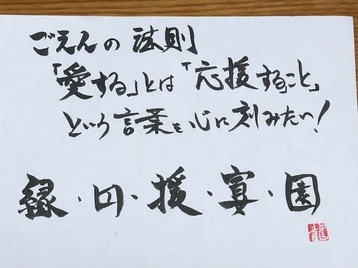 ごえんの法則
「愛する」とは「応援すること」
という言葉を心に刻みたい!
縁・円・援・宴・園